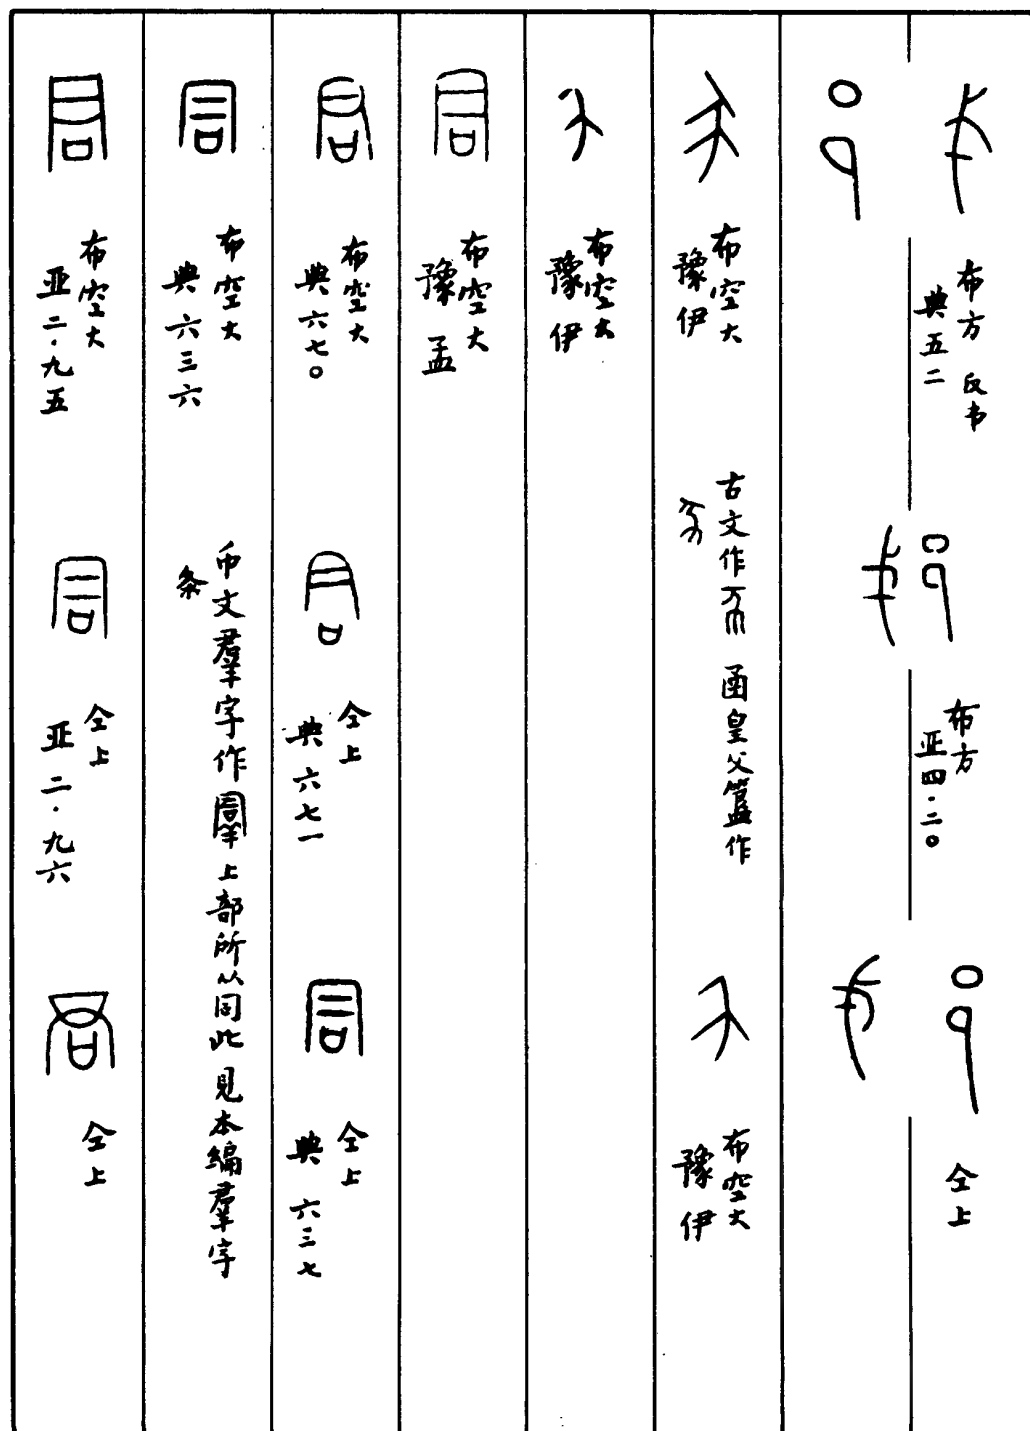 布方 反书
典五二
布方
亚四·二〇
仝上
布空大
豫伊
古文作
函皇父簋作
布空大
豫伊
布空大
豫伊
布空大
豫孟
布空大
典六七〇
仝上
典六七一
仝上
典六三七
布空大
典六三六
币文羣字作
上部所从同此 見本编羣字
条
布空大
亚二·九五
仝上
亚二·九六
仝上